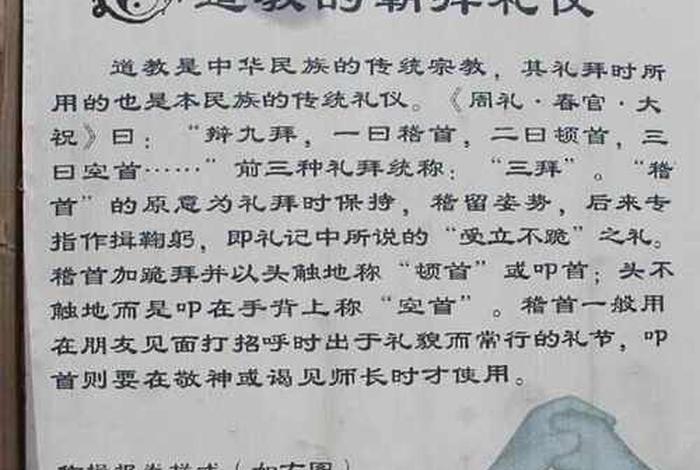 道教的朝拜礼仪
道教是中华民族的传统宗教，其礼拜时所
用的也是本民族的传统礼仪。《周礼·春官·大
祝》曰：“辩九拜，一曰稽首，二曰顿首，三
曰空首……”前三种礼拜统称：“三拜”。“稽
首”的原意为礼拜时保持，稽留姿势，后来专
指作揖鞠躬，即礼记中所说的“受立不跪”之礼。
稽首加跪拜并以头触地称“顿首”或叩首；头不
触地而是叩在手背上称“空首”。稽首一般用
在朋友见面打招呼时出于礼貌而常行的礼节，叩
首则要在敬神或谒见师长时才使用。
（如右图）